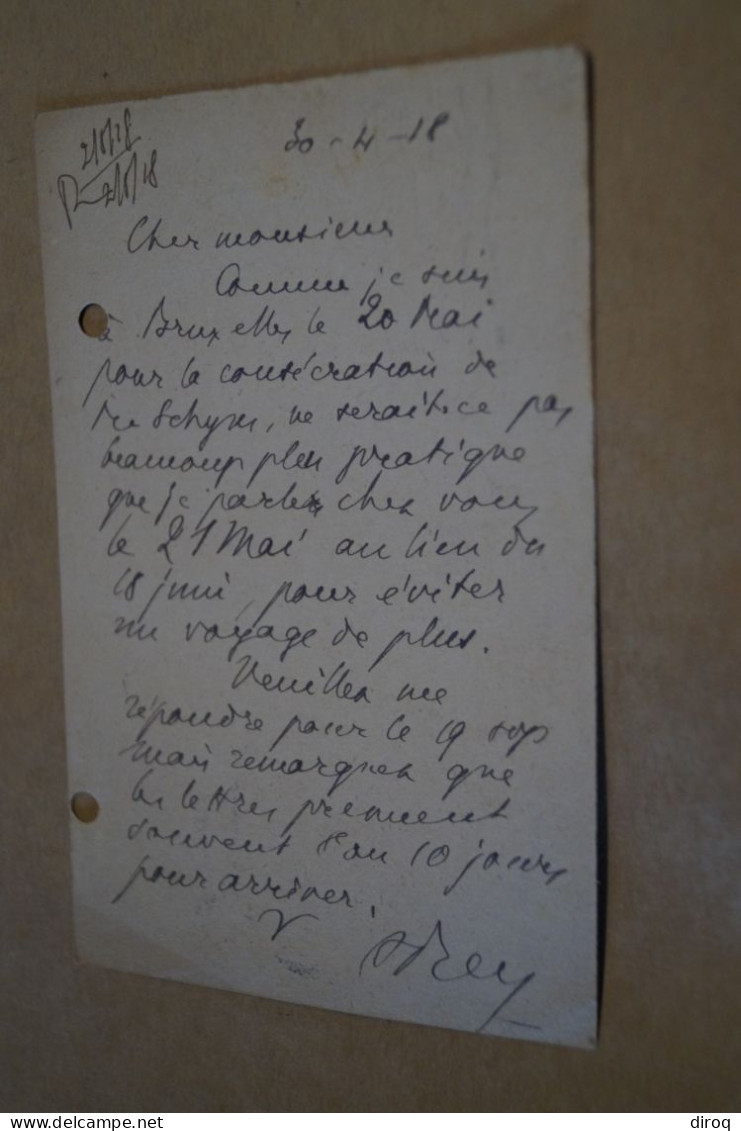 30-4-18
2/5/18
2/5/18
Cher monsieur
Comme je suis
à Bruxelles le 20 Mai
pour la consécration de
ne serait-ce pas
beaucoup plus pratique
que je parle chez vous
le 21 Mai au lieu du
18 juin, pour éviter
un voyage de plus.
Veuillez me
répondre pour le 19 svp
mais remarquez que
les lettres prennent
souvent 8 ou 10 jours
pour arriver.
diroq